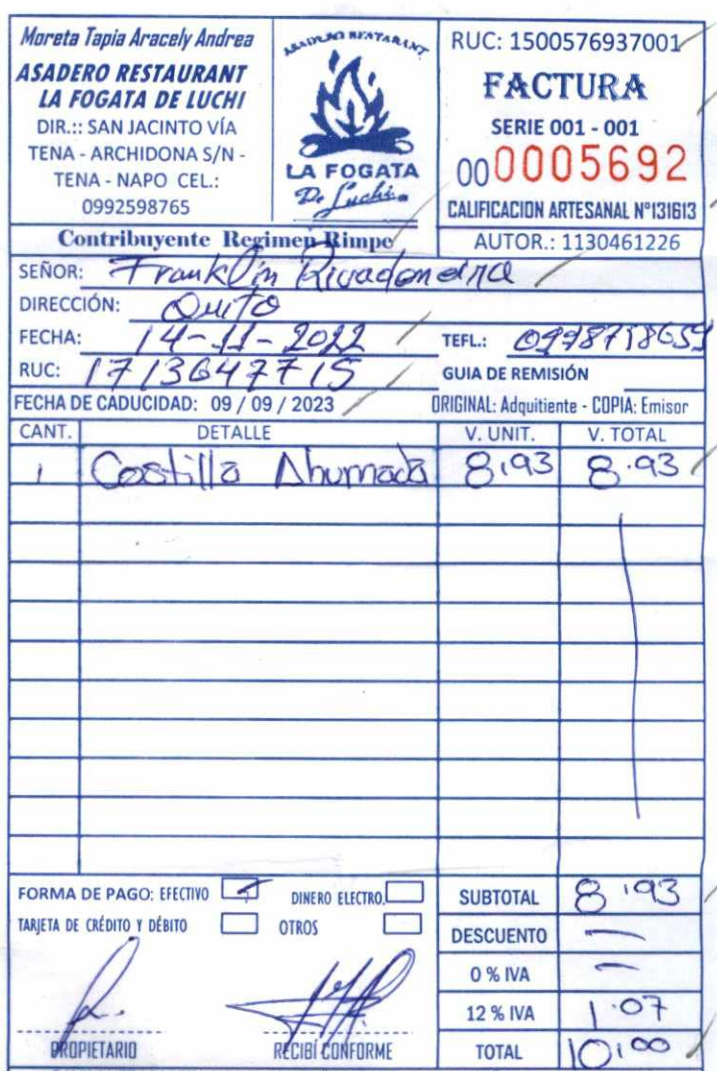 Moreta Tapia Aracely Andrea
ASADERO RESTAURANT
LA FOGATA DE LUCHI
DIR.:: SAN JACINTO VÍA
TENA - ARCHIDONA S/N -
TENA - NAPO CEL.:
0992598765
ASADERO RESTARANT
LA FOGATA
De Luchi
RUC: 1500576937001
FACTURA
SERIE 001 - 001
000005692
CALIFICACION ARTESANAL N°131613
Contribuyente Regimen Rimpe
AUTOR.: 1130461226
SEÑOR: Franklin Rivadeneira
DIRECCIÓN: Quito
FECHA: 14-11-2022 TEFL.:
RUC: 1713647715 GUIA DE REMISIÓN
FECHA DE CADUCIDAD: 09 / 09 / 2023 ORIGINAL: Adquitiente - COPIA: Emisor
CANT. DETALLE V. UNIT. V. TOTAL
1 Costilla Ahumada 8,93 8.93
FORMA DE PAGO: EFECTIVO DINERO ELECTRO.
TARJETA DE CRÉDITO Y DÉBITO OTROS
SUBTOTAL 8,93
DESCUENTO —
0 % IVA —
12 % IVA 1.07
TOTAL 10,00
PROPIETARIO RECIBÍ CONFORME